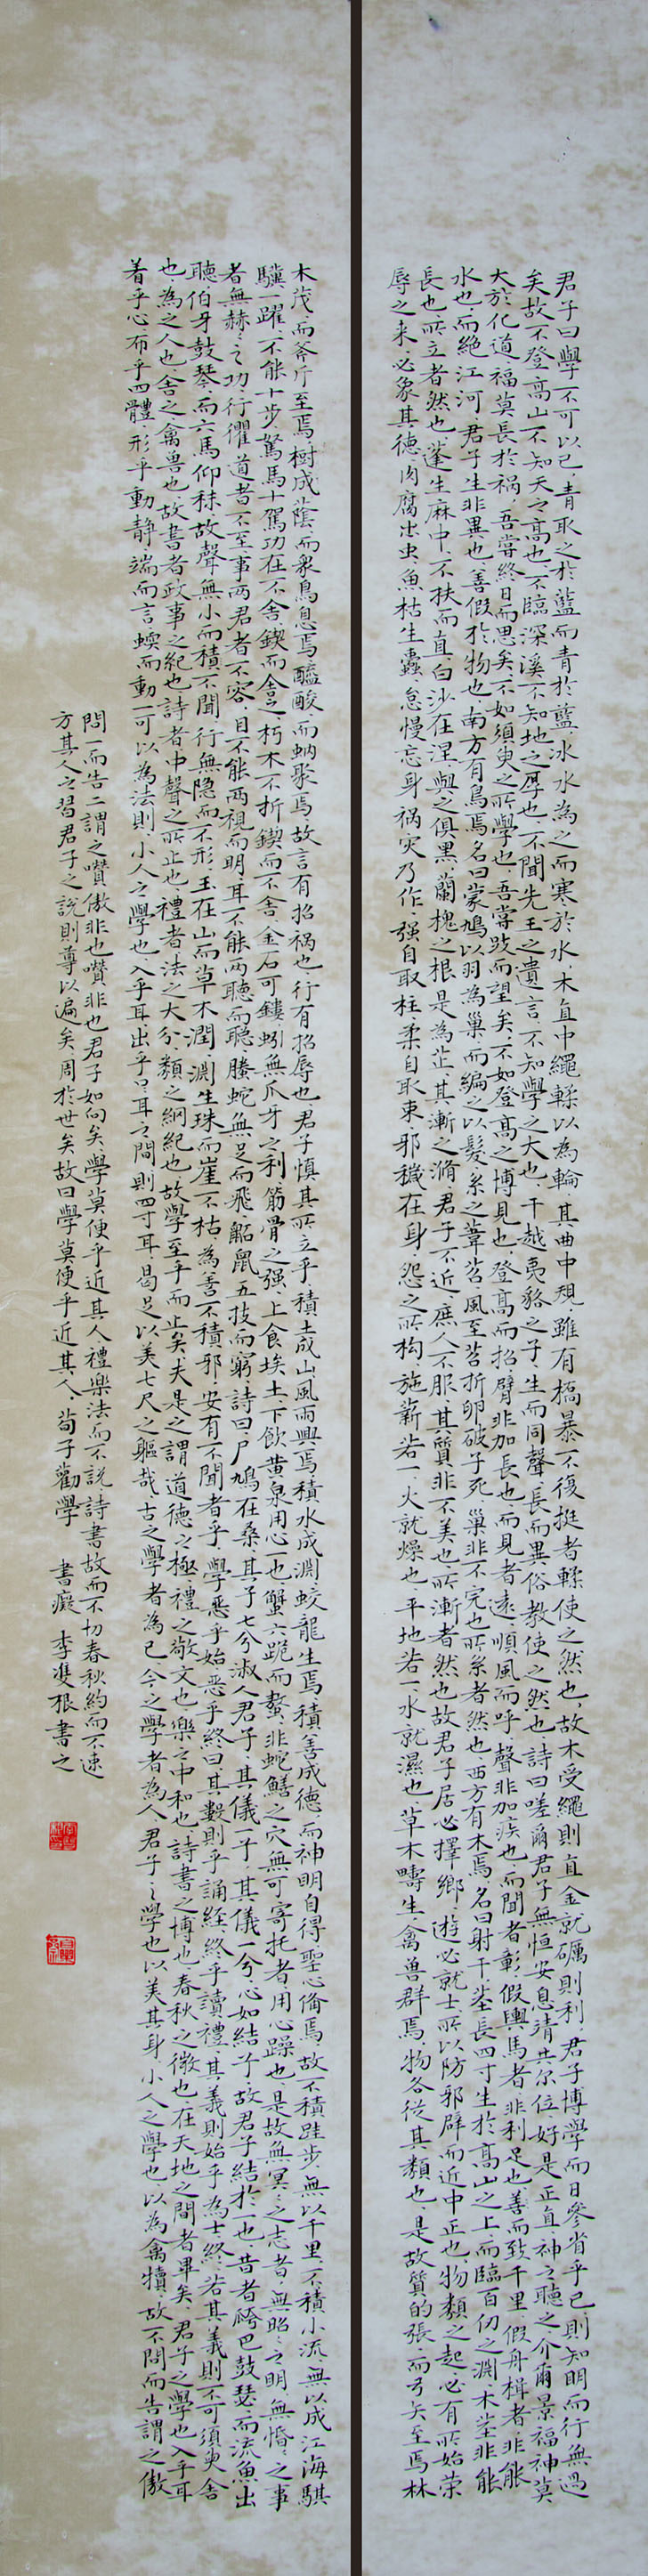 君子曰學不可以已青取之於藍而青於藍冰水為之而寒於水木直中繩輮以為輪其曲中規雖有槁暴不復挺者輮使之然也故木受繩則直金就礪則利君子博學而日參省乎己則知明而行無過
矣故不登高山不知天之高也不臨深溪不知地之厚也不聞先王之遺言不知學之大也干越夷貉之子生而同聲長而異俗教使之然也詩曰嗟爾君子無恒安息靖共尔位好是正直神之聽之介爾景福神莫
大於化道福莫長於祸吾嘗終日而思矣不如須臾之所學也吾嘗跂而望矣不如登高之博見也登高而招臂非加長也而見者遠順風而呼聲非加疾也而聞者彰假輿馬者非利足也善而致千里假舟楫者非能
水也而絕江河君子生非異也善假於物也南方有鳥焉名曰蒙鳩以羽為巢而編之以髮系之葦苕風至苕折卵破子死巢非不完也所系者然也西方有木焉名曰射干莖長四寸生於高山之上而臨百仞之淵木莖非能
長也所立者然也蓬生麻中不扶而直白沙在涅與之俱黑蘭槐之根是為芷其漸之滫君子不近庶人不服其質非不美也所漸者然也故君子居必擇鄉遊必就士所以防邪辟而近中正也物類之起必有所始荣
辱之来必象其德肉腐出虫魚枯生蠹怠慢忘身祸灾乃作强自取柱柔自取束邪穢在身怨之所构施薪若一火就燥也平地若一水就濕也草木疇生禽兽群焉物各從其類也是故質的張而弓矢至焉林
木茂而斧斤至焉樹成蔭而衆鳥息焉醯酸而蚋聚焉故言有招祸也行有招辱也君子慎其所立乎積土成山風雨興焉積水成淵蛟龍生焉積善成德而神明自得聖心俻焉故不積跬步無以千里不積小流無以成江海騏
驥一躍不能十步駑馬十駕功在不舍鍥而舍之朽木不折鍥而不舍金石可鏤蚓無爪牙之利筋骨之强上食埃土下飲黄泉用心一也蟹六跪而螯非蛇鱔之穴無可寄托者用心躁也是故無冥々之志者無昭々之明無惛々之事
者無赫々之功行衢道者不至事两君者不容目不能两視而明耳不能两聽而聰螣蛇無足而飛鼫鼠五技而窮詩曰尸鳩在桑其子七兮淑人君子其儀一兮其儀一兮心如結兮故君子結於一也昔者瓠巴鼓瑟而流魚出
聽伯牙鼓琴而六馬仰秣故聲無小而積不聞行無隐而不形玉在山而草木潤淵生珠而崖不枯為善不積邪安有不聞者乎學惡乎始恶乎終曰其數則乎誦経終乎讀禮其義則始乎為士終若其義則不可須臾舍
也為之人也舍之禽兽也故書者政事之紀也詩者中聲之所止也禮者法之大分類之綱紀也故學至乎而止矣夫是之謂道德之極禮之敬文也樂之中和也詩書之博也春秋之微也在天地之間者畢矣君子之學也入乎耳
着乎心布乎四體形乎動静端而言蝡而動一可以為法則小人之學也入乎耳出乎口耳之間則四寸耳曷足以美七尺之軀哉古之學者為己今之學者為人君子之學也以美其身小人之學也以為禽犢故不問而告謂之傲
問一而告二謂之囋傲非也囋非也君子如向矣學莫便乎近其人禮樂法而不說詩書故而不切春秋約而不速
方其人之習君子之說則尊以遍矣周於世矣故曰學莫便乎近其人荀子勸學 書癡李雙根書之